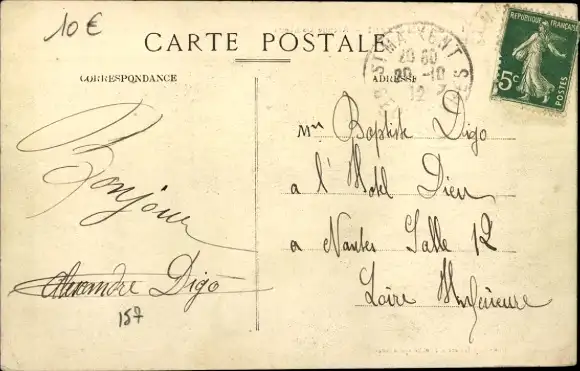 10 €
CARTE POSTALE
CORRESPONDANCE
ADRESSE
RÉPUBLIQUE FRANÇAISE
5c
POSTES
20 10
12
Mr Baptiste Digo
a l'Hotel Dieu
a Nantes Salle 12
Loire Inférieure
Bonjour
Alexandre Digo
157